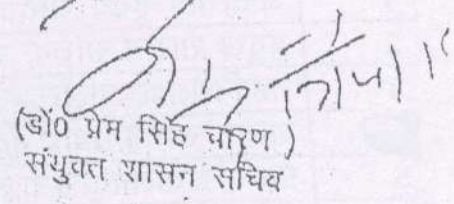 (डॉ0 प्रेम सिंह चारण )
संयुक्त शासन सचिव